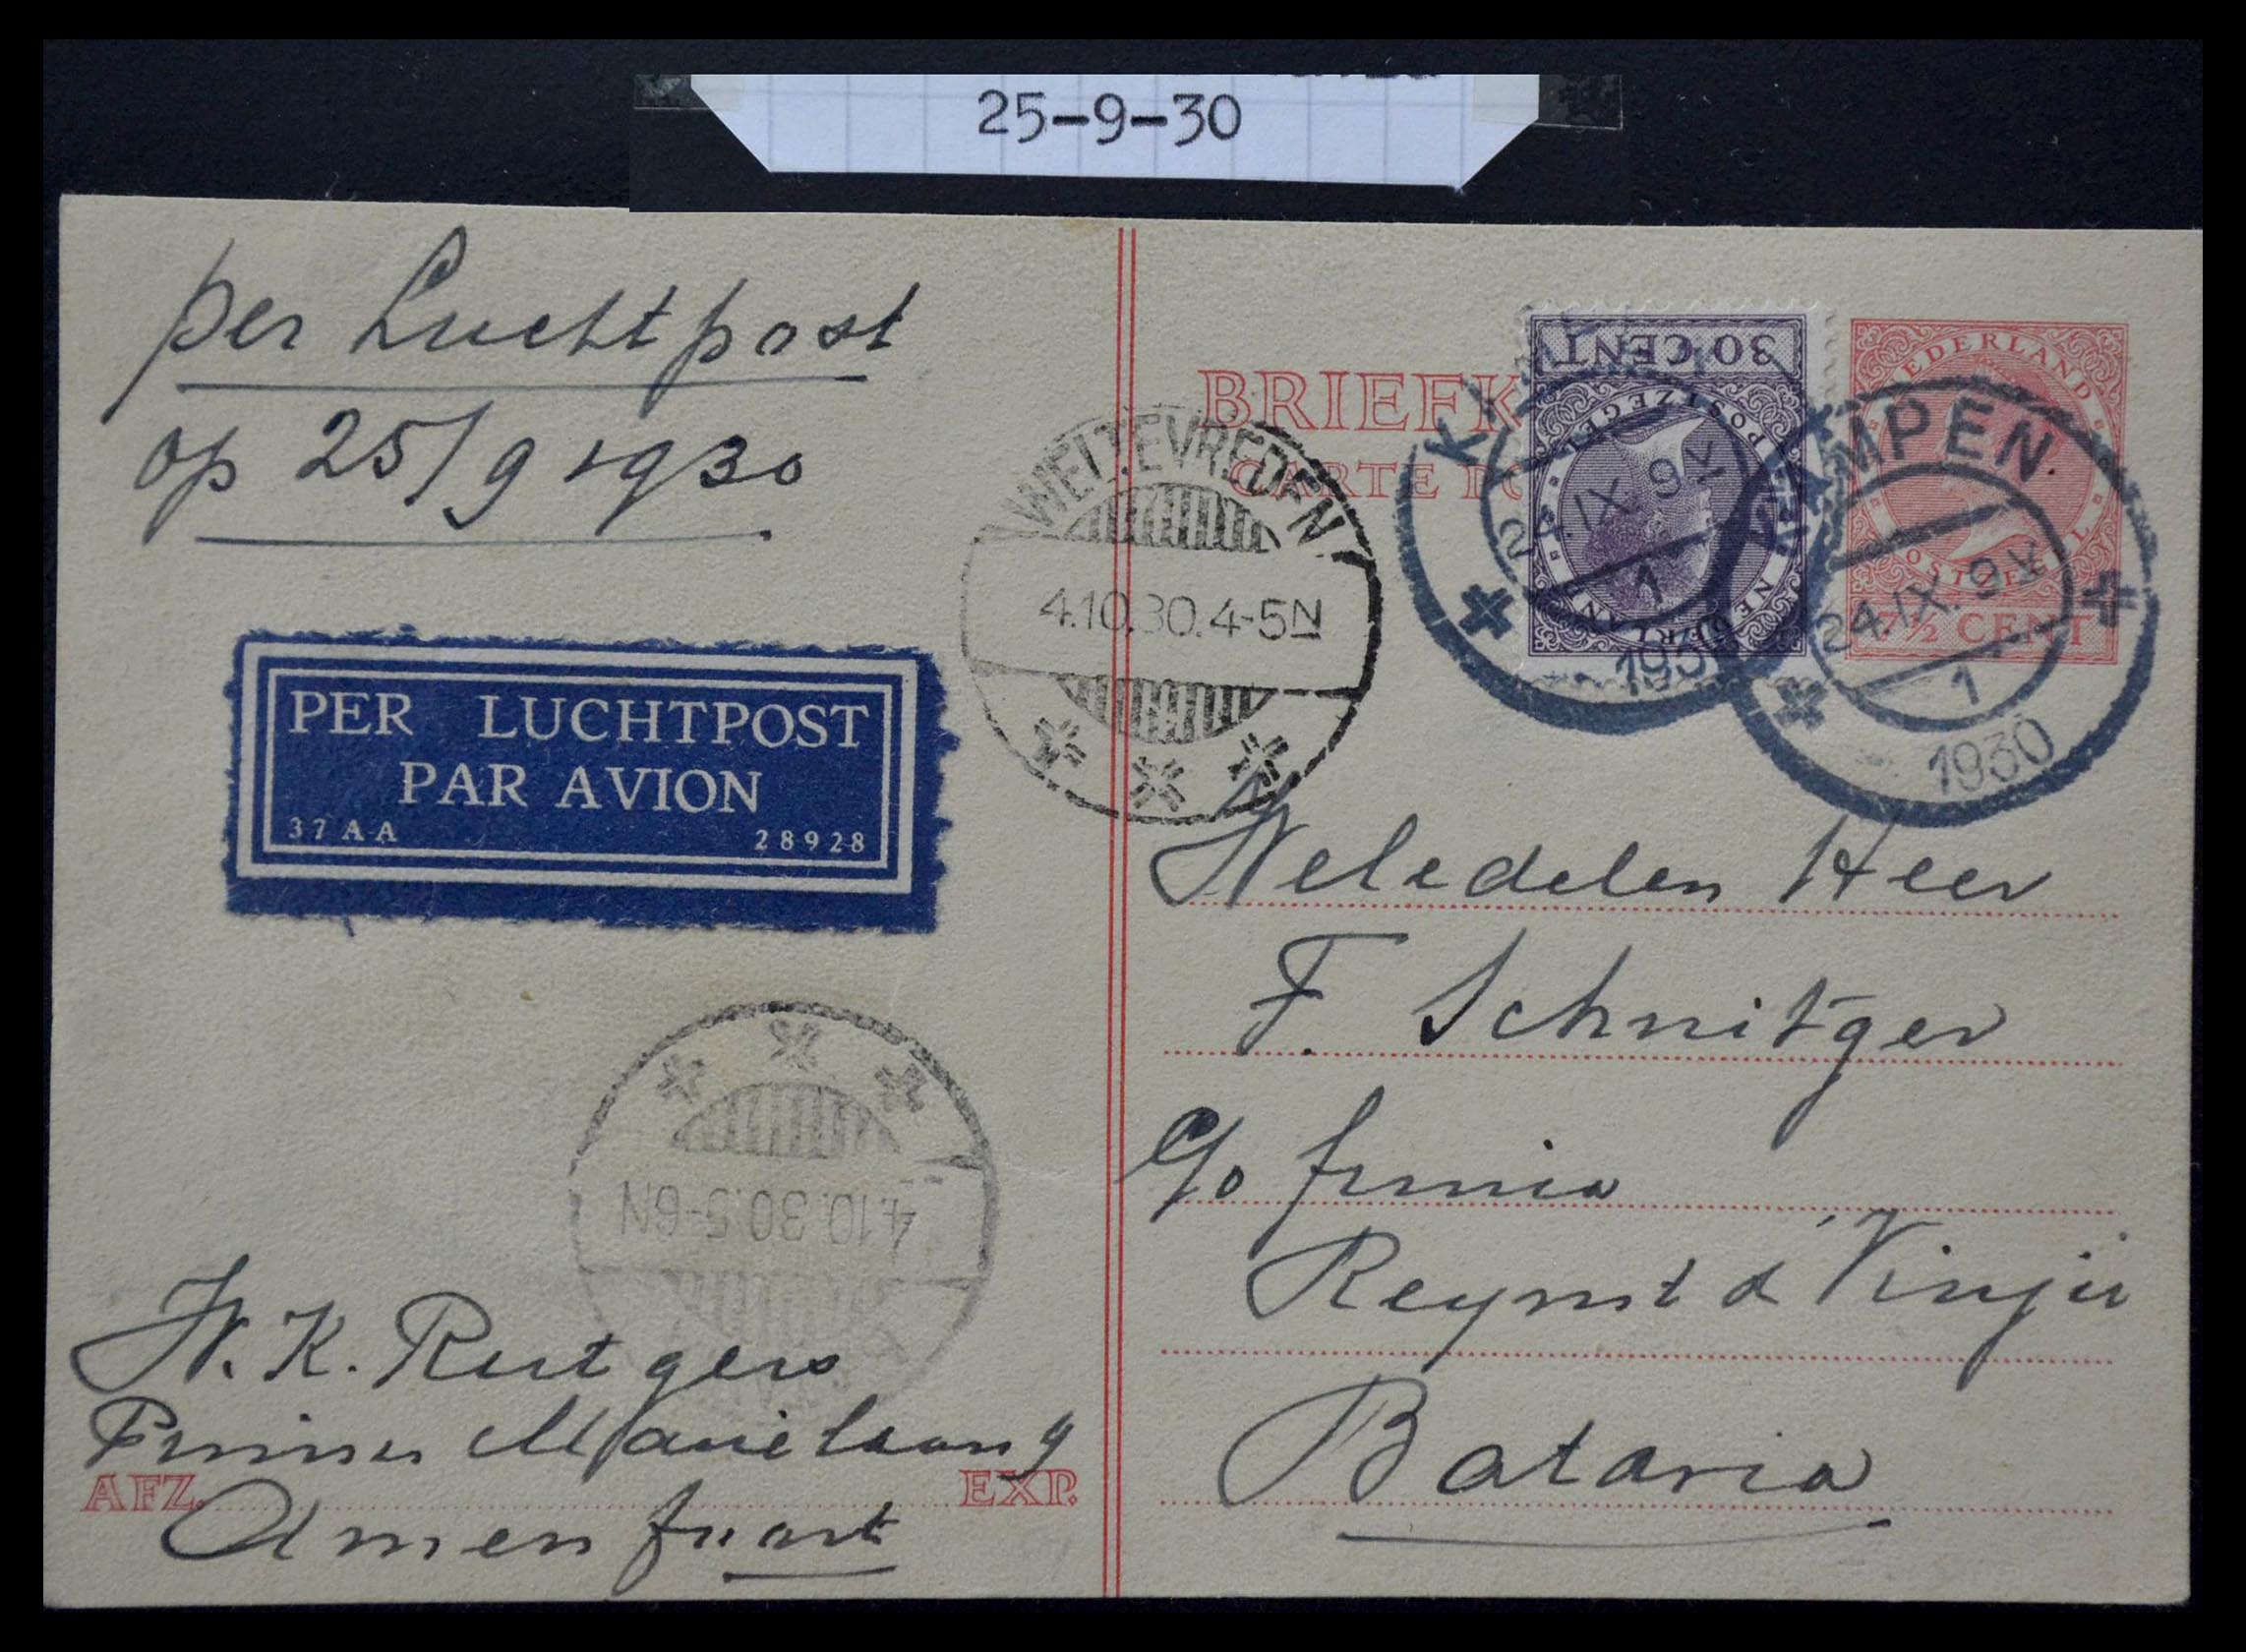 25-9-30
per Luchtpost
op 25/9 1930
PER LUCHTPOST
PAR AVION
37 AA 28928
WELTEVREDEN
4.10.30.4-5N
4.10.30.5-6N
W. K. Rutgers
Prinses Marielaan 9
AFZ. EXP.
Amersfoort
BRIEFK
CARTE PO
30 CENT
POSTZEGEL
NEDERLAND
NEDERLAND
POSTZEGEL
7½ CENT
KAMPEN
24.IX.9V
1
1930
KAMPEN
24.IX.9V
1
1930
Weledelen Heer
F. Schnitger
c/o firma
Reynst & Vinju
Batavia